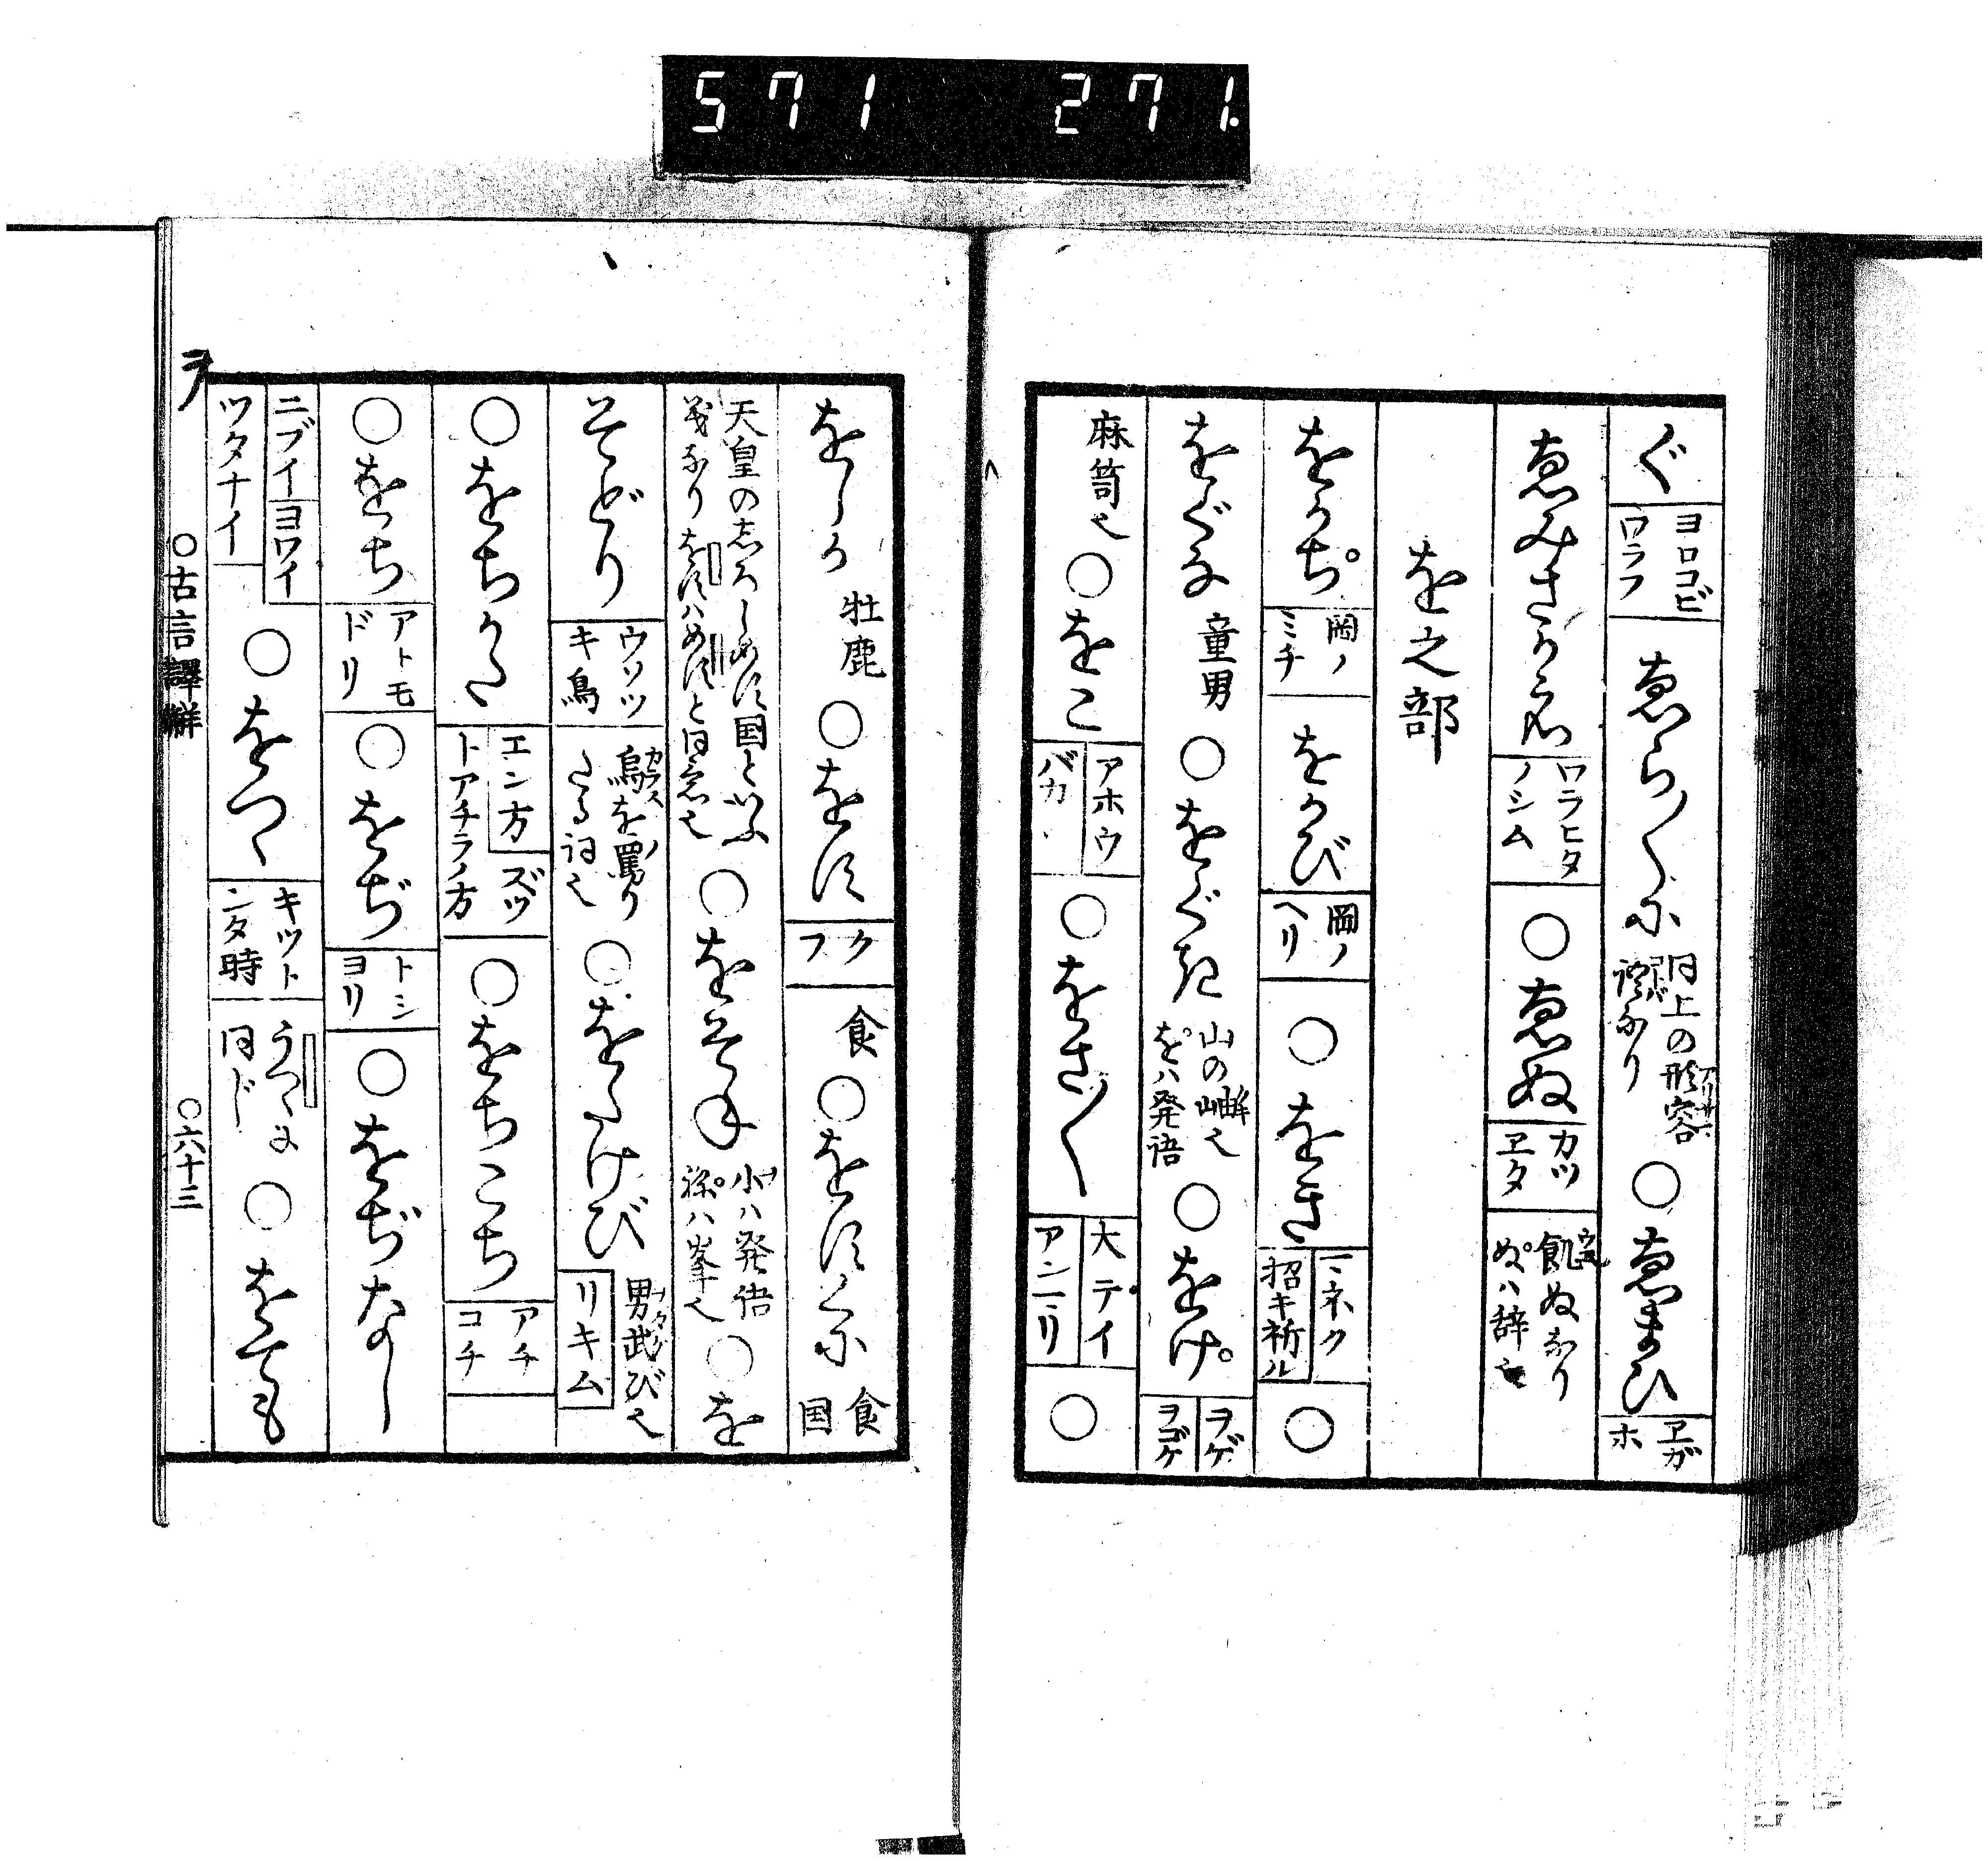 571 271.
ぐ ヨロコビ ワラフ ゑらくに 同上の形容 詞なり ○ゑまひ ヱガホ
ゑみさかえ ワラヒタノシム ○ゑぬ カツヱタ 飢ぬなり ぬハ辞也
を之部
をかぢ 岡ノミチ をかび 岡ノヘリ ○をき マネク 招キ祈ル ○
をぐな 童男 ○をぐき 山の岫也 をハ発語 ○をけ ヲゲ ヲゴケ
麻笥也 ○をこ アホウ バカ ○をさ〱 大テイ アンマリ ○
をしか 牡鹿 ○をす クフ 食 ○をすくに 食国
天皇の志ろしめす国といふ 義なり をすハめすと同意也 ○をそね 小ハ発語 祢ハ峯也 ○を
そどり ウソツキ鳥 烏を罵りたる詞也 ○をたけび 男武び也 リキム
○をちかた エン方 ズツトアチラノ方 ○をちこち アチコチ
○をち アトモドリ ○をぢ トシヨリ ○をぢなし
ニブイ ヨワイ ツタナイ ○をつゝ キツトシタ時 うつゝに同じ ○をても
ヲ ○古言譯解 ○六十三